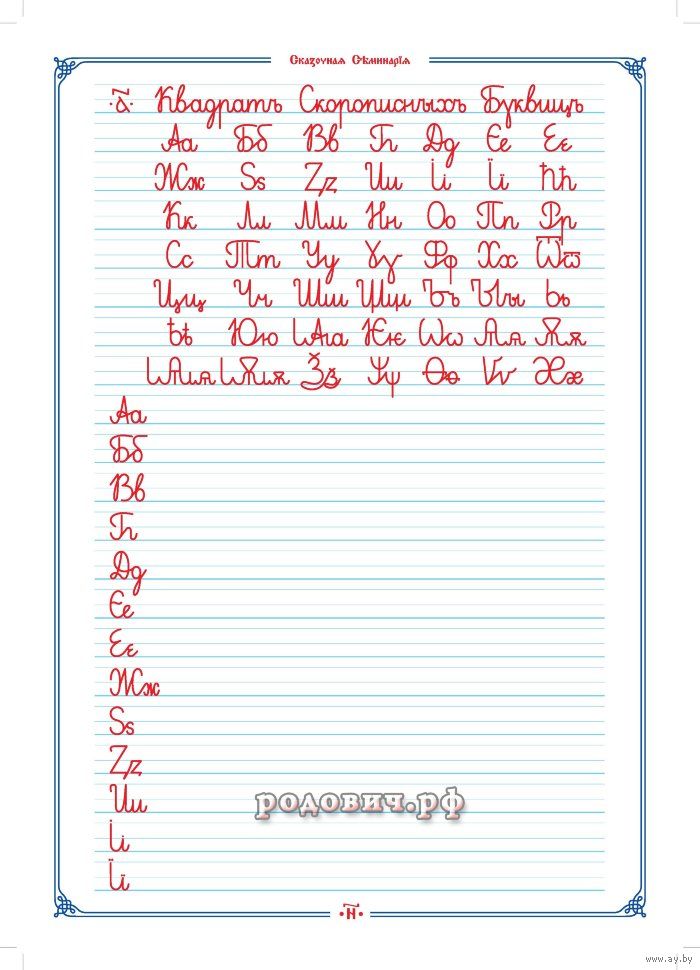 Сказочная Сѣминарїя
·а҃· Квадратъ Скорописныхъ Буквицъ
Аа Бб Вв Гг Дд Єе Ее
Жж Ѕѕ Zz Ии Іі Її Ћћ
Кк Лл Мм Нн Оо Пп Рр
Сс Тт Уу Ɣɣ Фф Хх Ѿѿ
Цц Чч Шш Щщ Ъъ Ыы Ьь
Ѣѣ Юю Ꙗꙗ Ѥѥ Ѡѡ Ѧѧ Ѫѫ
Ѩѩ Ѭѭ Ѯѯ Ѱѱ Ѳѳ Ѵѵ Ӕӕ
Аа
Бб
Вв
Гг
Дд
Єе
Ее
Жж
Ѕѕ
Zz
Ии
Іі
Її
родович.рф
·н҃·
www.ay.by